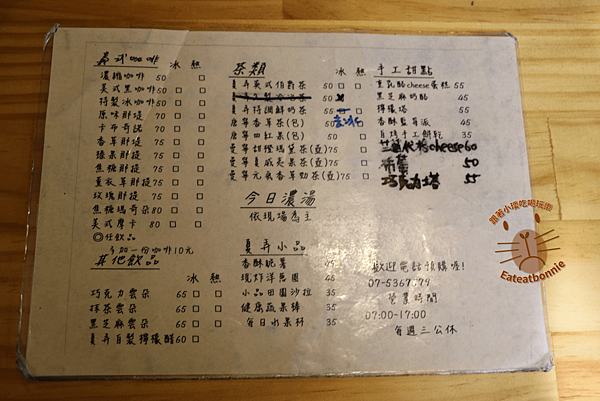 員弄咖啡 冰 熱
濃縮咖啡 50 □
美式黑咖啡 50 □ □
特製冰咖啡 50 □
原味那堤 70 □ □
卡布奇諾 70 □ □
香草那堤 75 □ □
榛果那堤 75 □ □
焦糖那堤 75 □ □
薰衣草那堤 75 □ □
玫瑰那堤 75 □ □
焦糖瑪奇朵 80 □ □
美式摩卡 80 □ □
◎任飲品
多加一份咖啡10元
其他飲品
冰 熱
巧克力雲朵 65 □ □
抹茶雲朵 65 □ □
黑芝麻雲朵 65 □ □
員弄自製檸檬醋 60 □ □
茶類 冰 熱
員弄英式伯爵茶 50 □ □
員弄特調鮮奶茶 55 □
唐寧香草茶(包) 50 去冰
唐寧四紅果(包) 50 □
曼寧甜橙瑪黛茶(壺) 75 □
曼寧夏威夷果茶(壺) 75 □
曼寧元氣香草勁茶(壺) 75 □
今日濃湯
依現場為主
員弄小品
香酥脆薯 45
現炸洋蔥圈 45
小品田園沙拉 35
健康蔬果棒 35
每日水果杯 35
手工甜點
重乳酪cheese蛋糕 55
黑芝麻奶酪 45
檸檬塔 55
香酥藍莓派 45
自烤手工餅乾 35
cheese 60
50
巧克力塔 55
歡迎電話預購喔!
07-5367
營業時間
07:00-17:00
每週三公休
跟著小環吃喝玩園
Eateatbonnie